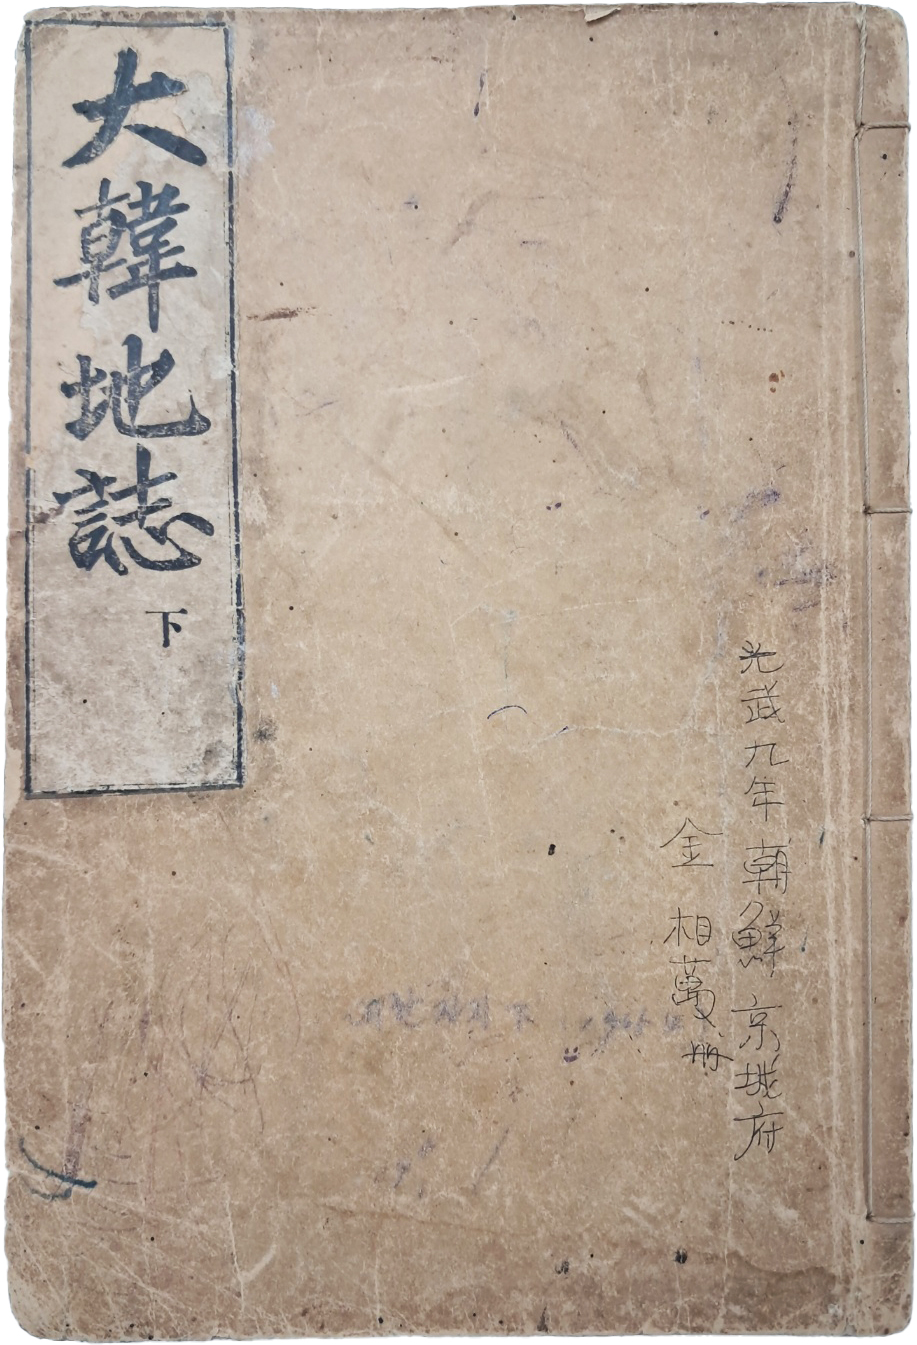 光武九年 朝鮮 京城府
金相萬册
大韓地誌 下